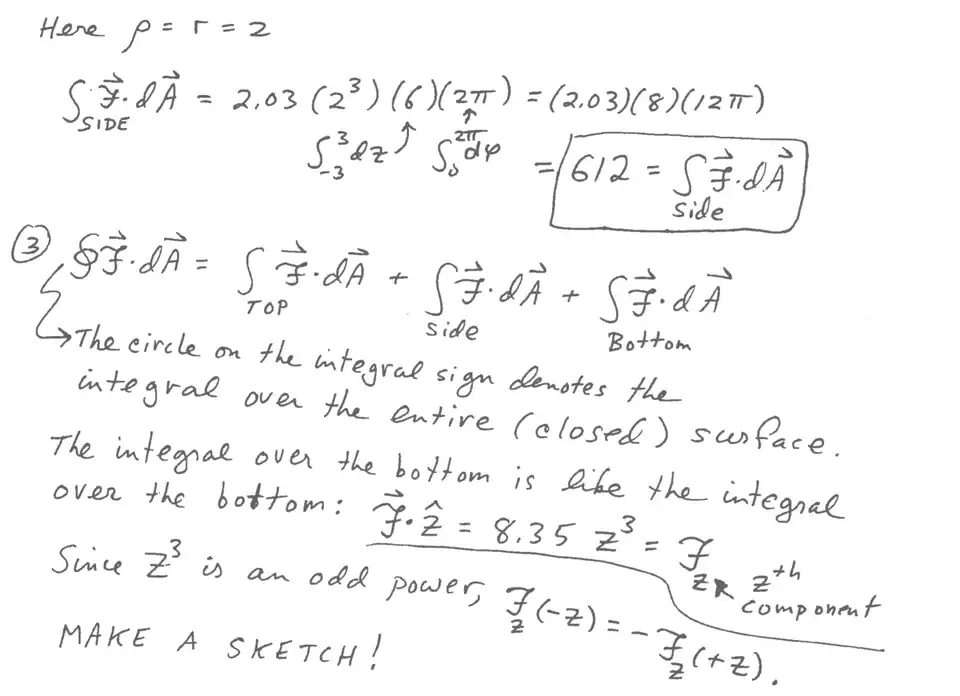 Here ρ = r = 2
∫_SIDE 𝓕⃗·dA⃗ = 2.03 (2³)(6)(2π) = (2.03)(8)(12π)
∫₋₃³dz ↑ ∫₀^2π dφ ↑
= 612 = ∫_side 𝓕⃗·dA⃗
③ ∮𝓕⃗·dA⃗ = ∫_TOP 𝓕⃗·dA⃗ + ∫_side 𝓕⃗·dA⃗ + ∫_Bottom 𝓕⃗·dA⃗
→ The circle on the integral sign denotes the
integral over the entire (closed) surface.
The integral over the bottom is like the integral
over the bottom: 𝓕⃗·ẑ = 8.35 z³ = 𝓕_z ↖ zth component
Since z³ is an odd power, 𝓕_z(-z) = -𝓕_z(+z).
MAKE A SKETCH!